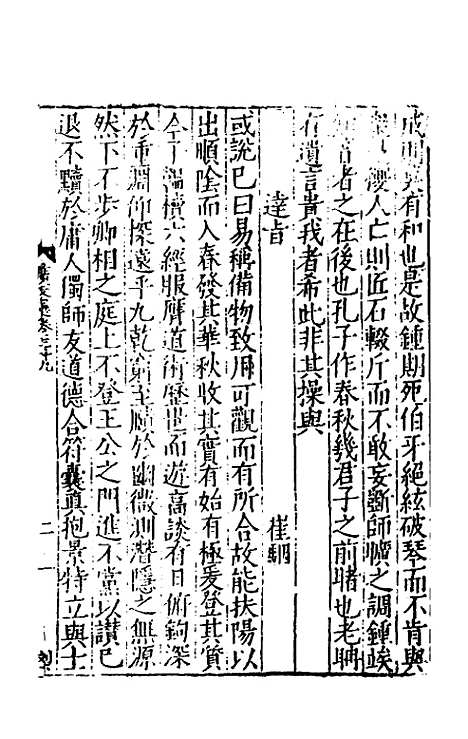 成而莫有和也是故鍾期死伯牙絕絃破琴而不肯與
人亡則匠石輟斤而不敢妄斲師曠之調鍾竢
者之在後也孔子作春秋幾君子之前睹也老聃
有遺言貴我者希此非其操與
達旨 崔駰
或說已曰易稱備物致用可觀而有所合故能扶陽以
出順陰而入春發其華秋收其實有始有極爰登其質
今子韞櫝六經服膺道術歷世而遊高談有日俯鉤深
於重淵仰探遠乎九乾窮至賾於幽微測潛隱之無源
然下不步卿相之庭上不登王公之門進不黨以讚已
退不黷於庸人獨師友道德合符曩真抱景特立與士
卷三十九 二